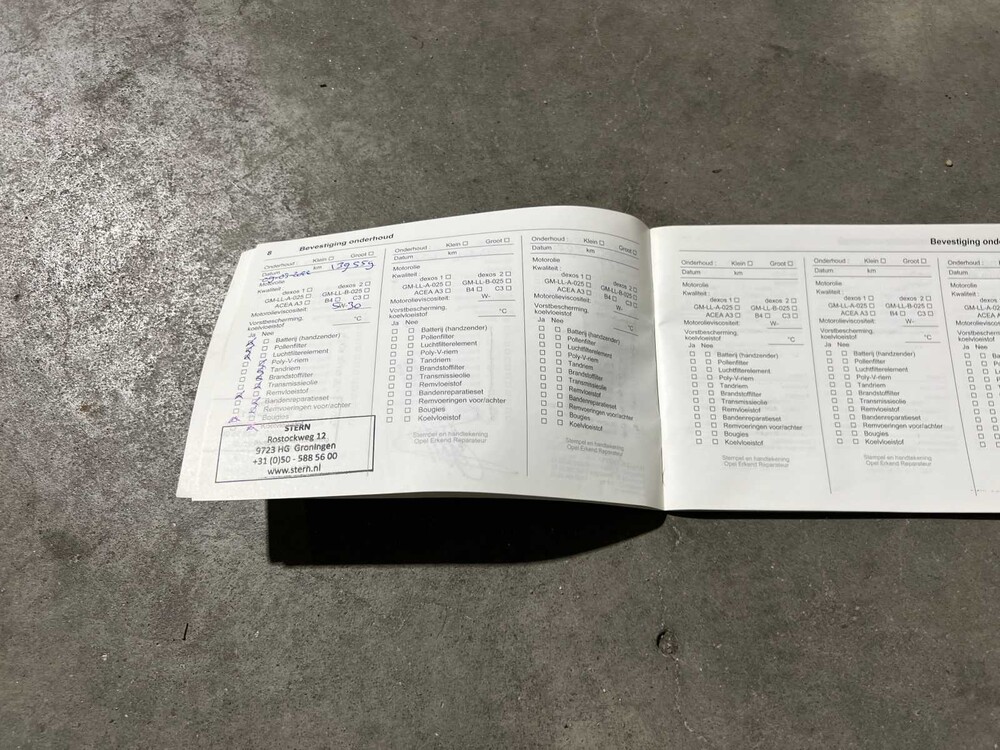 8 Bevestiging onderhoud
Onderhoud : Klein □ Groot □
Datum km 139559
Motorolie
Kwaliteit :
dexos 1 □ dexos 2 □
GM-LL-A-025 □ GM-LL-B-025 □
ACEA A3 □ B4 □ C3 □
Motorolieviscositeit: 5W-30
Vorstbescherming, °C
koelvloeistof
Ja Nee
Batterij (handzender)
Pollenfilter
Luchtfilterelement
Poly-V-riem
Tandriem
Brandstoffilter
Transmissieolie
Remvloeistof
Bandenreparatieset
Remvoeringen voor/achter
Bougies
STERN
Rostockweg 12
9723 HG Groningen
+31 (0)50 - 588 56 00
www.stern.nl
Onderhoud : Klein □ Groot □
Datum km
Motorolie
Kwaliteit :
dexos 1 □ dexos 2 □
GM-LL-A-025 □ GM-LL-B-025 □
ACEA A3 □ B4 □ C3 □
Motorolieviscositeit: W-
Vorstbescherming, °C
koelvloeistof
Ja Nee
□ □ Batterij (handzender)
□ □ Pollenfilter
□ □ Luchtfilterelement
□ □ Poly-V-riem
□ □ Tandriem
□ □ Brandstoffilter
□ □ Transmissieolie
□ □ Remvloeistof
□ □ Bandenreparatieset
□ □ Remvoeringen voor/achter
□ □ Bougies
□ □ Koelvloeistof
Stempel en handtekening
Opel Erkend Reparateur
Onderhoud : Klein □ Groot □
Datum km
Motorolie
Kwaliteit :
dexos 1 □ dexos 2 □
GM-LL-A-025 □ GM-LL-B-025 □
ACEA A3 □ B4 □ C3 □
Motorolieviscositeit: W-
Vorstbescherming, °C
koelvloeistof
Ja Nee
□ □ Batterij (handzender)
□ □ Pollenfilter
□ □ Luchtfilterelement
□ □ Poly-V-riem
□ □ Tandriem
□ □ Brandstoffilter
□ □ Transmissieolie
□ □ Remvloeistof
□ □ Bandenreparatieset
□ □ Remvoeringen voor/achter
□ □ Bougies
□ □ Koelvloeistof
Stempel en handtekening
Opel Erkend Reparateur
Bevestiging ond
Onderhoud : Klein □ Groot □
Datum km
Motorolie
Kwaliteit :
dexos 1 □ dexos 2 □
GM-LL-A-025 □ GM-LL-B-025 □
ACEA A3 □ B4 □ C3 □
Motorolieviscositeit: W-
Vorstbescherming, °C
koelvloeistof
Ja Nee
□ □ Batterij (handzender)
□ □ Pollenfilter
□ □ Luchtfilterelement
□ □ Poly-V-riem
□ □ Tandriem
□ □ Brandstoffilter
□ □ Transmissieolie
□ □ Remvloeistof
□ □ Bandenreparatieset
□ □ Remvoeringen voor/achter
□ □ Bougies
□ □ Koelvloeistof
Stempel en handtekening
Opel Erkend Reparateur
Onderhoud : Klein □ Groot □
Datum km
Motorolie
Kwaliteit :
dexos 1 □ dexos 2 □
GM-LL-A-025 □ GM-LL-B-025 □
ACEA A3 □ B4 □ C3 □
Motorolieviscositeit: W-
Vorstbescherming, °C
koelvloeistof
Ja Nee
□ □ Batterij (handzender)
□ □ Pollenfilter
□ □ Luchtfilterelement
□ □ Poly-V-riem
□ □ Tandriem
□ □ Brandstoffilter
□ □ Transmissieolie
□ □ Remvloeistof
□ □ Bandenreparatieset
□ □ Remvoeringen voor/achter
□ □ Bougies
□ □ Koelvloeistof
Stempel en handtekening
Opel Erkend Reparateur
Onderhoud :
Datum
Motorolie
Kwaliteit :
dexos
GM-LL-A-025
ACEA A3
Motorolieviscosit
Vorstbescherming
koelvloeistof
Ja Nee